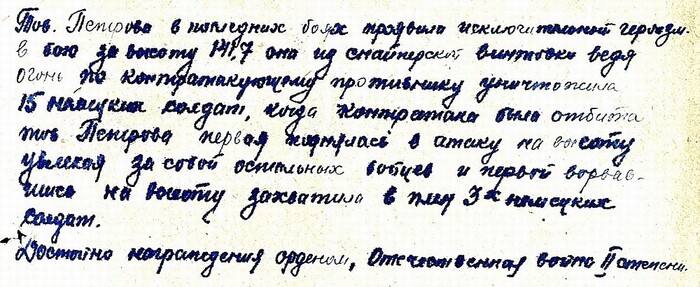 Тов. Петрова в последних боях проявила исключительной героизм.
в бою за высоту 141,7 она из снайперской винтовки ведя
огонь по контратакующему противнику уничтожила
15 немецких солдат, когда контратака была отбита
тов. Петрова первая поднялась в атаку на высоту
увлекая за собой остальных бойцев и первой ворвав-
шись на высоту захватила в плен 3х немецких
солдат.
Достойна награждения орденом, Отечественная война II степени.